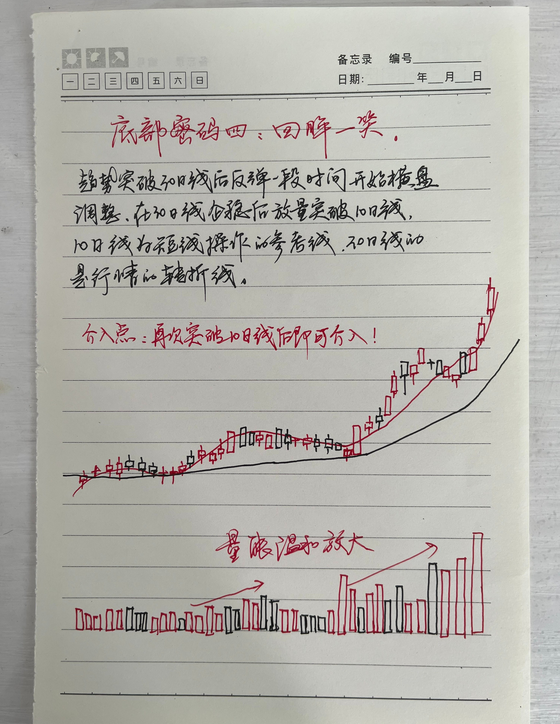 备忘录 编号
一 二 三 四 五 六 日
日期: 年 月 日
底部密码四：回眸一笑。
趋势突破30日线后反弹一段时间开始横盘
调整、在30日线企稳后放量突破10日线，
10日线为短线操作的参考线、30日线则
是行情的转折线。
介入点：再次突破10日线后即可介入！
量能温和放大